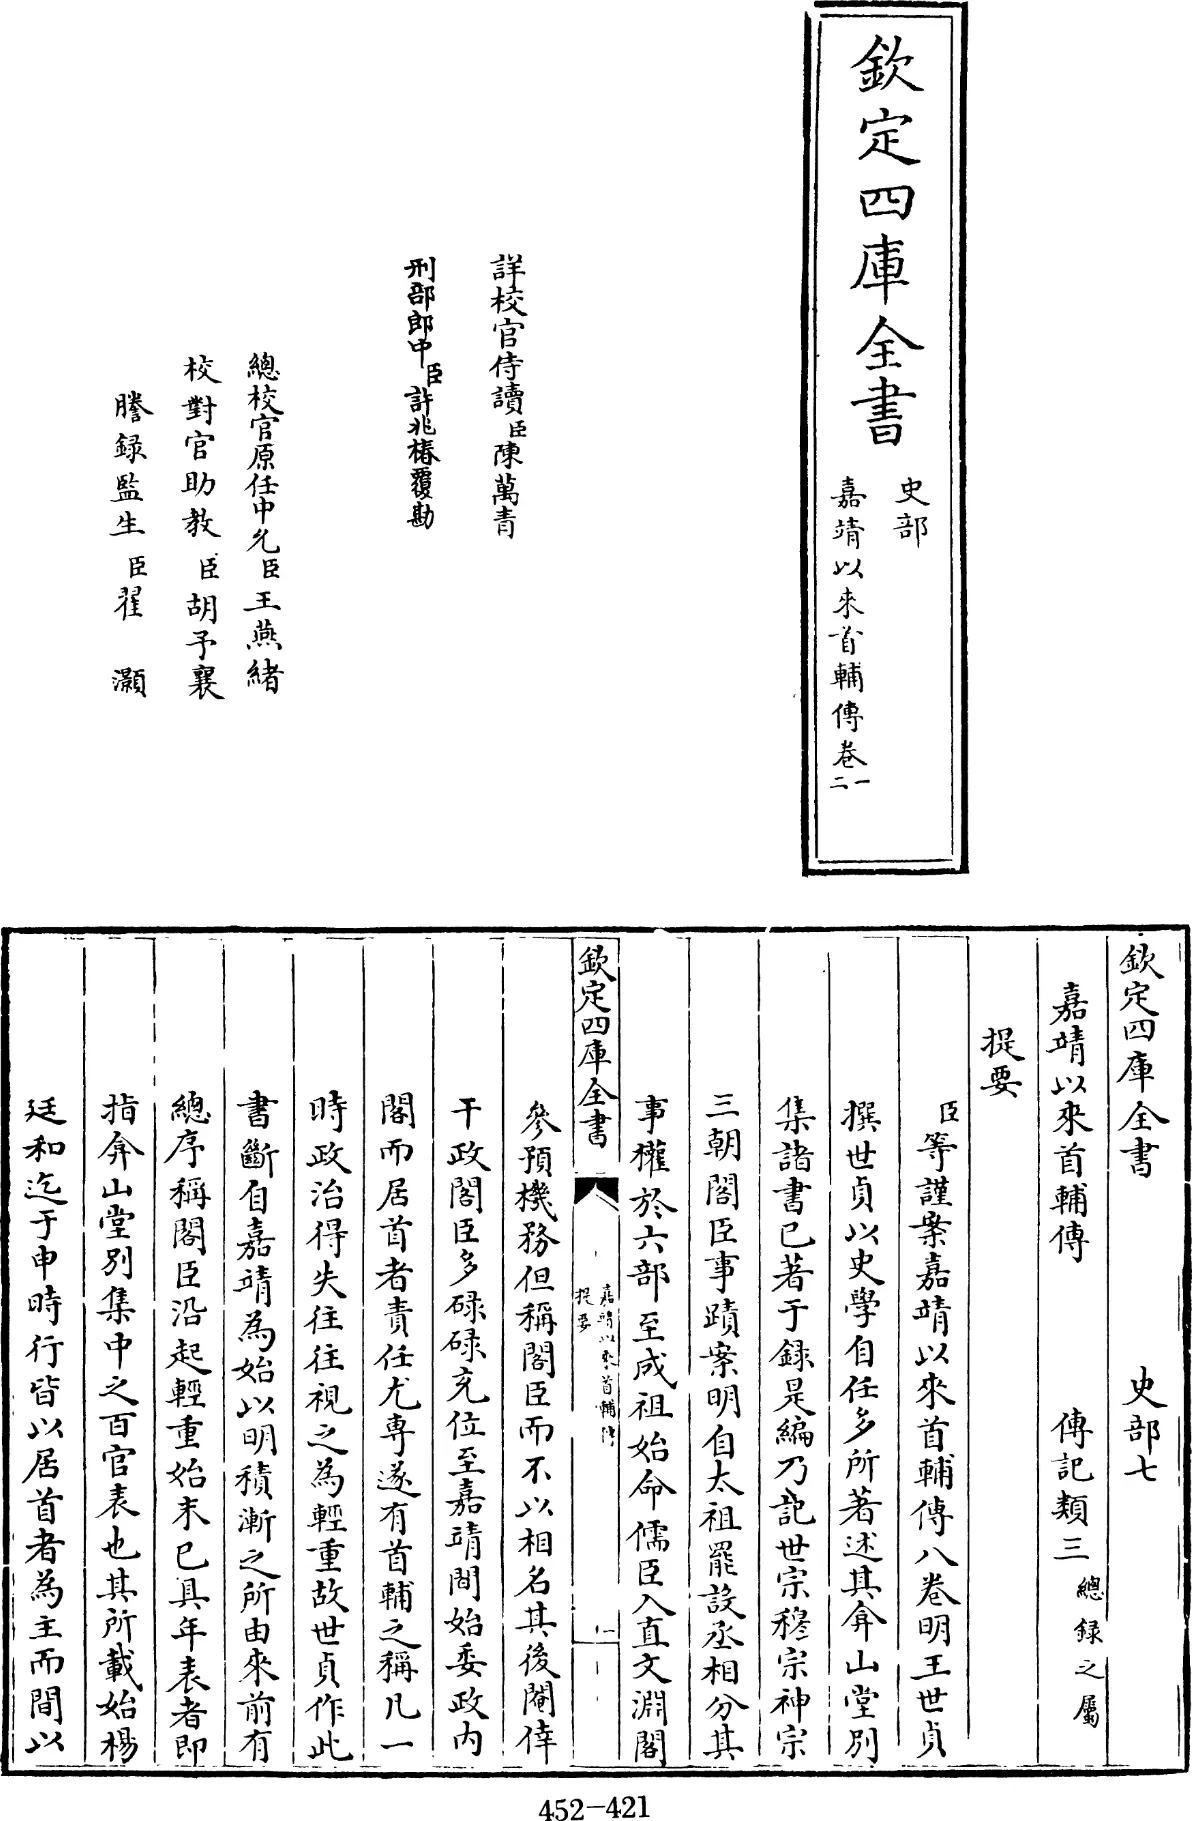 欽定四庫全書
史部
嘉靖以來首輔傳卷一
二
詳校官侍讀臣陳萬青
刑部郎中臣許兆椿覆勘
總校官原任中允臣王燕緒
校對官助教臣胡予襄
謄録監生臣翟灝
欽定四庫全書 史部七
嘉靖以來首輔傳 傳記類三總録之屬
提要
臣等謹案嘉靖以來首輔傳八卷明王世貞
撰世貞以史學自任多所著述其弇山堂別
集諸書已著于録是編乃記世宗穆宗神宗
三朝閣臣事蹟案明自太祖罷設丞相分其
事權於六部至成祖始命儒臣入直文淵閣
欽定四庫全書
嘉靖以來首輔傳
提要
一
參預機務但稱閣臣而不以相名其後閹倖
干政閣臣多碌碌充位至嘉靖間始委政内
閣而居首者責任尤專遂有首輔之稱凡一
時政治得失往往視之為輕重故世貞作此
書斷自嘉靖為始以明積漸之所由來前有
總序稱閣臣沿起輕重始末已具年表者即
指弇山堂別集中之百官表也其所載始楊
廷和迄于申時行皆以居首者為主而間以
452-421